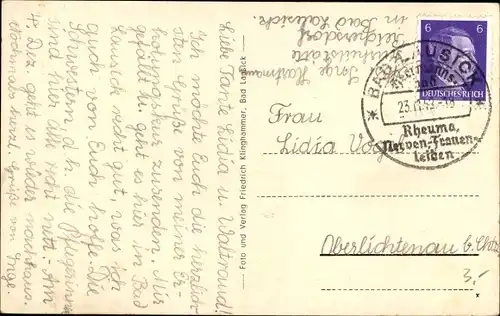 Liebe Tante Lidia u. Waltraud!
Ich möchte Euch die herzlich-
sten Grüße von meiner Er-
holungskur zusenden. Mir
gefällt es geht es hier in Bad
Lausick recht gut, was ich
auch von Euch hoffe. Die
Schwestern, d. h. die
sind hier alle sehr nett. Am
4. Dez. geht es wieder nachhaus.
Nochmals viel Grüße von
Inge.
Foto und Verlag Friedrich Klinghammer, Bad Lausick
Inge Hartmann
in Bad Lausick.
6 6
DEUTSCHES REICH
BAD LAUSICK
Rheuma,
Nerven-Frauen-
leiden
Frau
Lidia
Oberlichtenau b. Chtz.
3,-